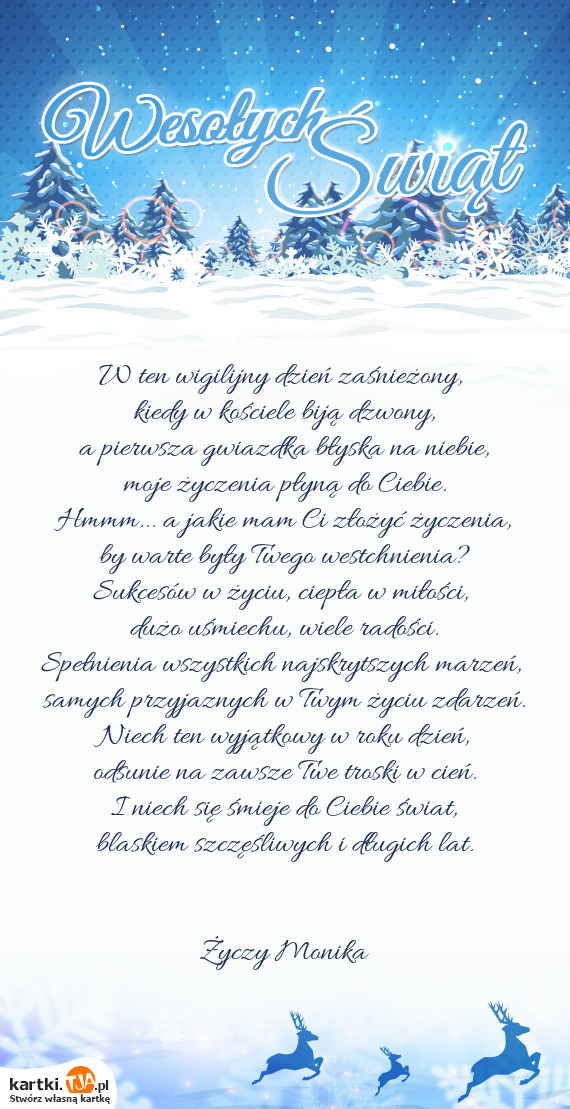 Wesołych
Świąt
W ten wigilijny dzień zaśnieżony,
kiedy w kościele biją dzwony,
a pierwsza gwiazdka błyska na niebie,
moje życzenia płyną do Ciebie.
Hmmm... a jakie mam Ci złożyć życzenia,
by warte były Twego westchnienia?
Sukcesów w życiu, ciepła w miłości,
dużo uśmiechu, wiele radości.
Spełnienia wszystkich najskrytszych marzeń,
samych przyjaznych w Twym życiu zdarzeń.
Niech ten wyjątkowy w roku dzień,
odsunie na zawsze Twe troski w cień.
I niech się śmieje do Ciebie świat,
blaskiem szczęśliwych i długich lat.
Życzy Monika
kartki.TJA.pl
Stwórz własną kartkę